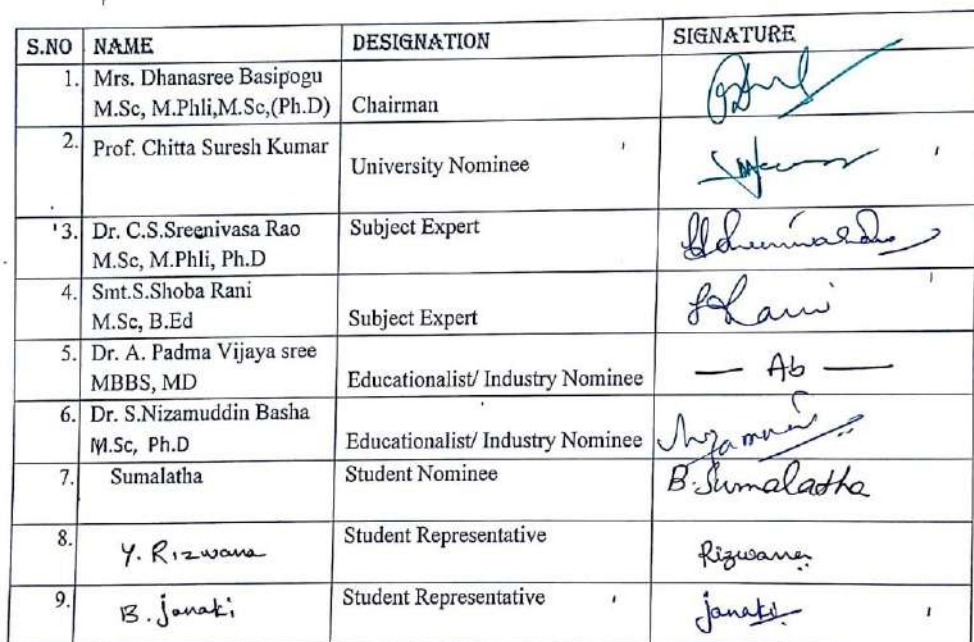 S.NO NAME DESIGNATION SIGNATURE
1. Mrs. Dhanasree Basipogu
M.Sc, M.Phli,M.Sc,(Ph.D) Chairman
2. Prof. Chitta Suresh Kumar
University Nominee
3. Dr. C.S.Sreenivasa Rao Subject Expert
M.Sc, M.Phli, Ph.D
4. Smt.S.Shoba Rani
M.Sc, B.Ed Subject Expert
5. Dr. A. Padma Vijaya sree
MBBS, MD Educationalist/ Industry Nominee — Ab —
6. Dr. S.Nizamuddin Basha
M.Sc, Ph.D Educationalist/ Industry Nominee
7. Sumalatha Student Nominee B.Sumalatha
8. Y. Rizwana Student Representative Rizwana
9. B. Janaki Student Representative Janaki